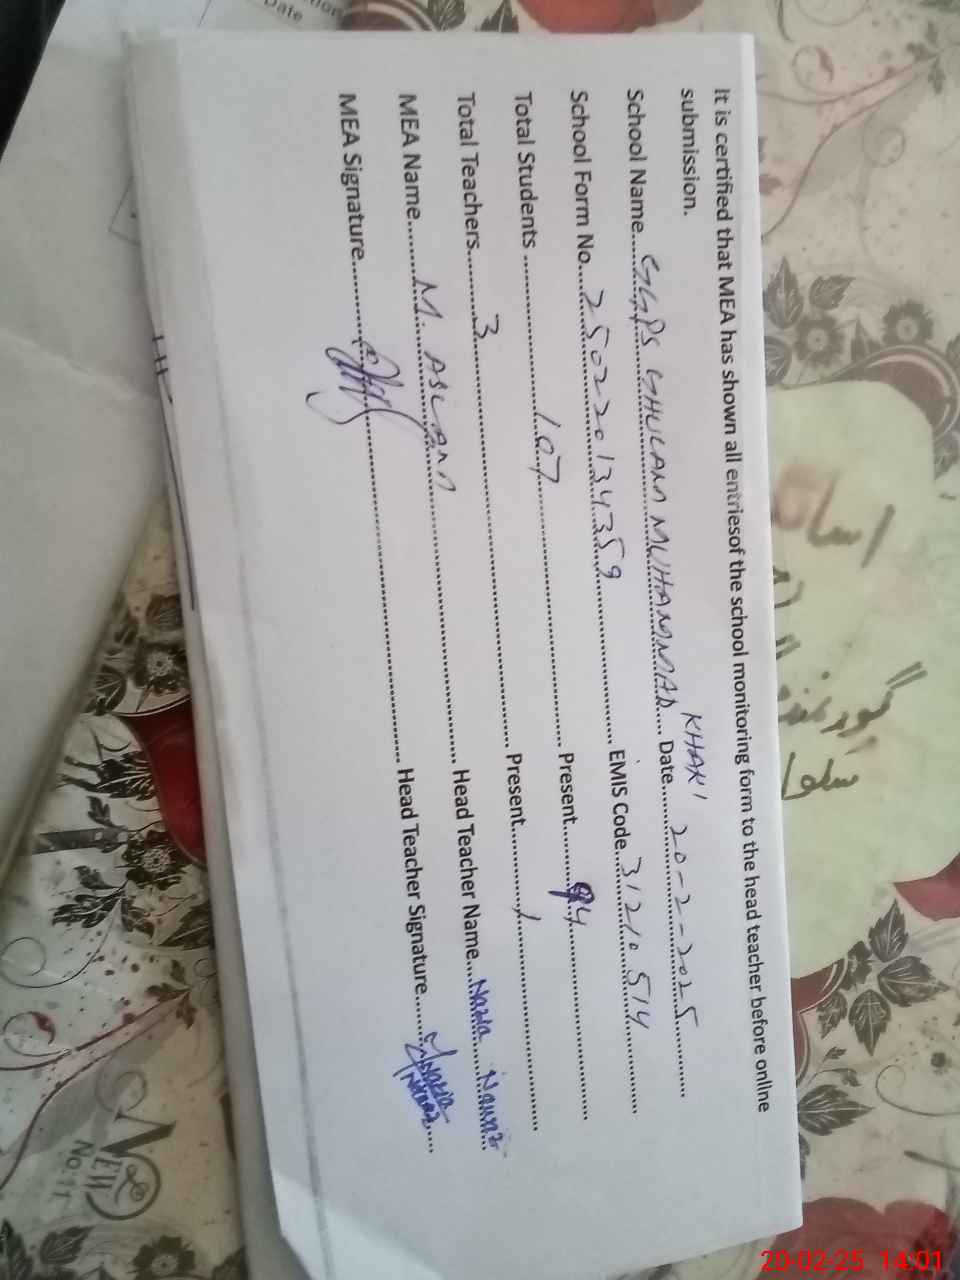 It is certified that MEA has shown all entriesof the school monitoring form to the head teacher before online
submission.
School Name....GGPS GHULAM MUHAMMAD KHAN.... Date....20-2-2025....
School Form No....250220134359.... EMIS Code....31210514....
Total Students ....107.... Present....94....
Total Teachers....3.... Present....1....
MEA Name....M. ASLAM.... Head Teacher Name....Nazia....
MEA Signature.... Head Teacher Signature....
Date
NEW
No.11
20-02-25 14:01